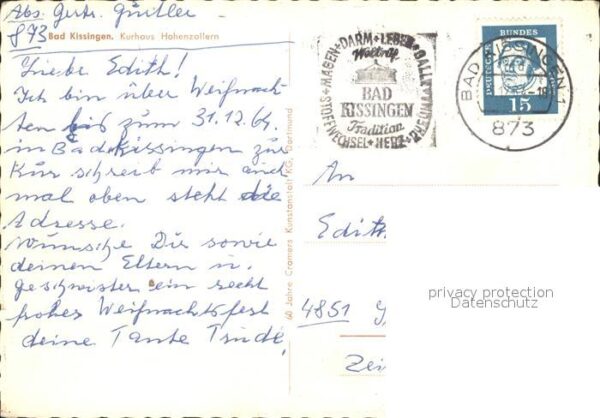 Abs. Gertr. Gürtler
873 Bad Kissingen, Kurhaus Hohenzollern
Liebe Edith!
Ich bin über Weihnach-
ten bis zum 31.12.64
in Bad Kissingen zur
Kur schreib mir auch
mal oben steht die
Adresse.
Wünsche Dir sowie
deinen Eltern u.
geschwister ein recht
frohes Weihnachtsfest
deine Tante Trude,
60 Jahre Cramers Kunstanstalt KG, Dortmund
MAGEN + DARM + LEBER GALLE STOFFWECHSEL + HERZ
Weltruf
BAD
KISSINGEN
Tradition
BAD KISSINGEN 1
-18
873
DEUTSCHE BUNDESPOST
15
An
Edith
4851
Zei
privacy protection
Datenschutz